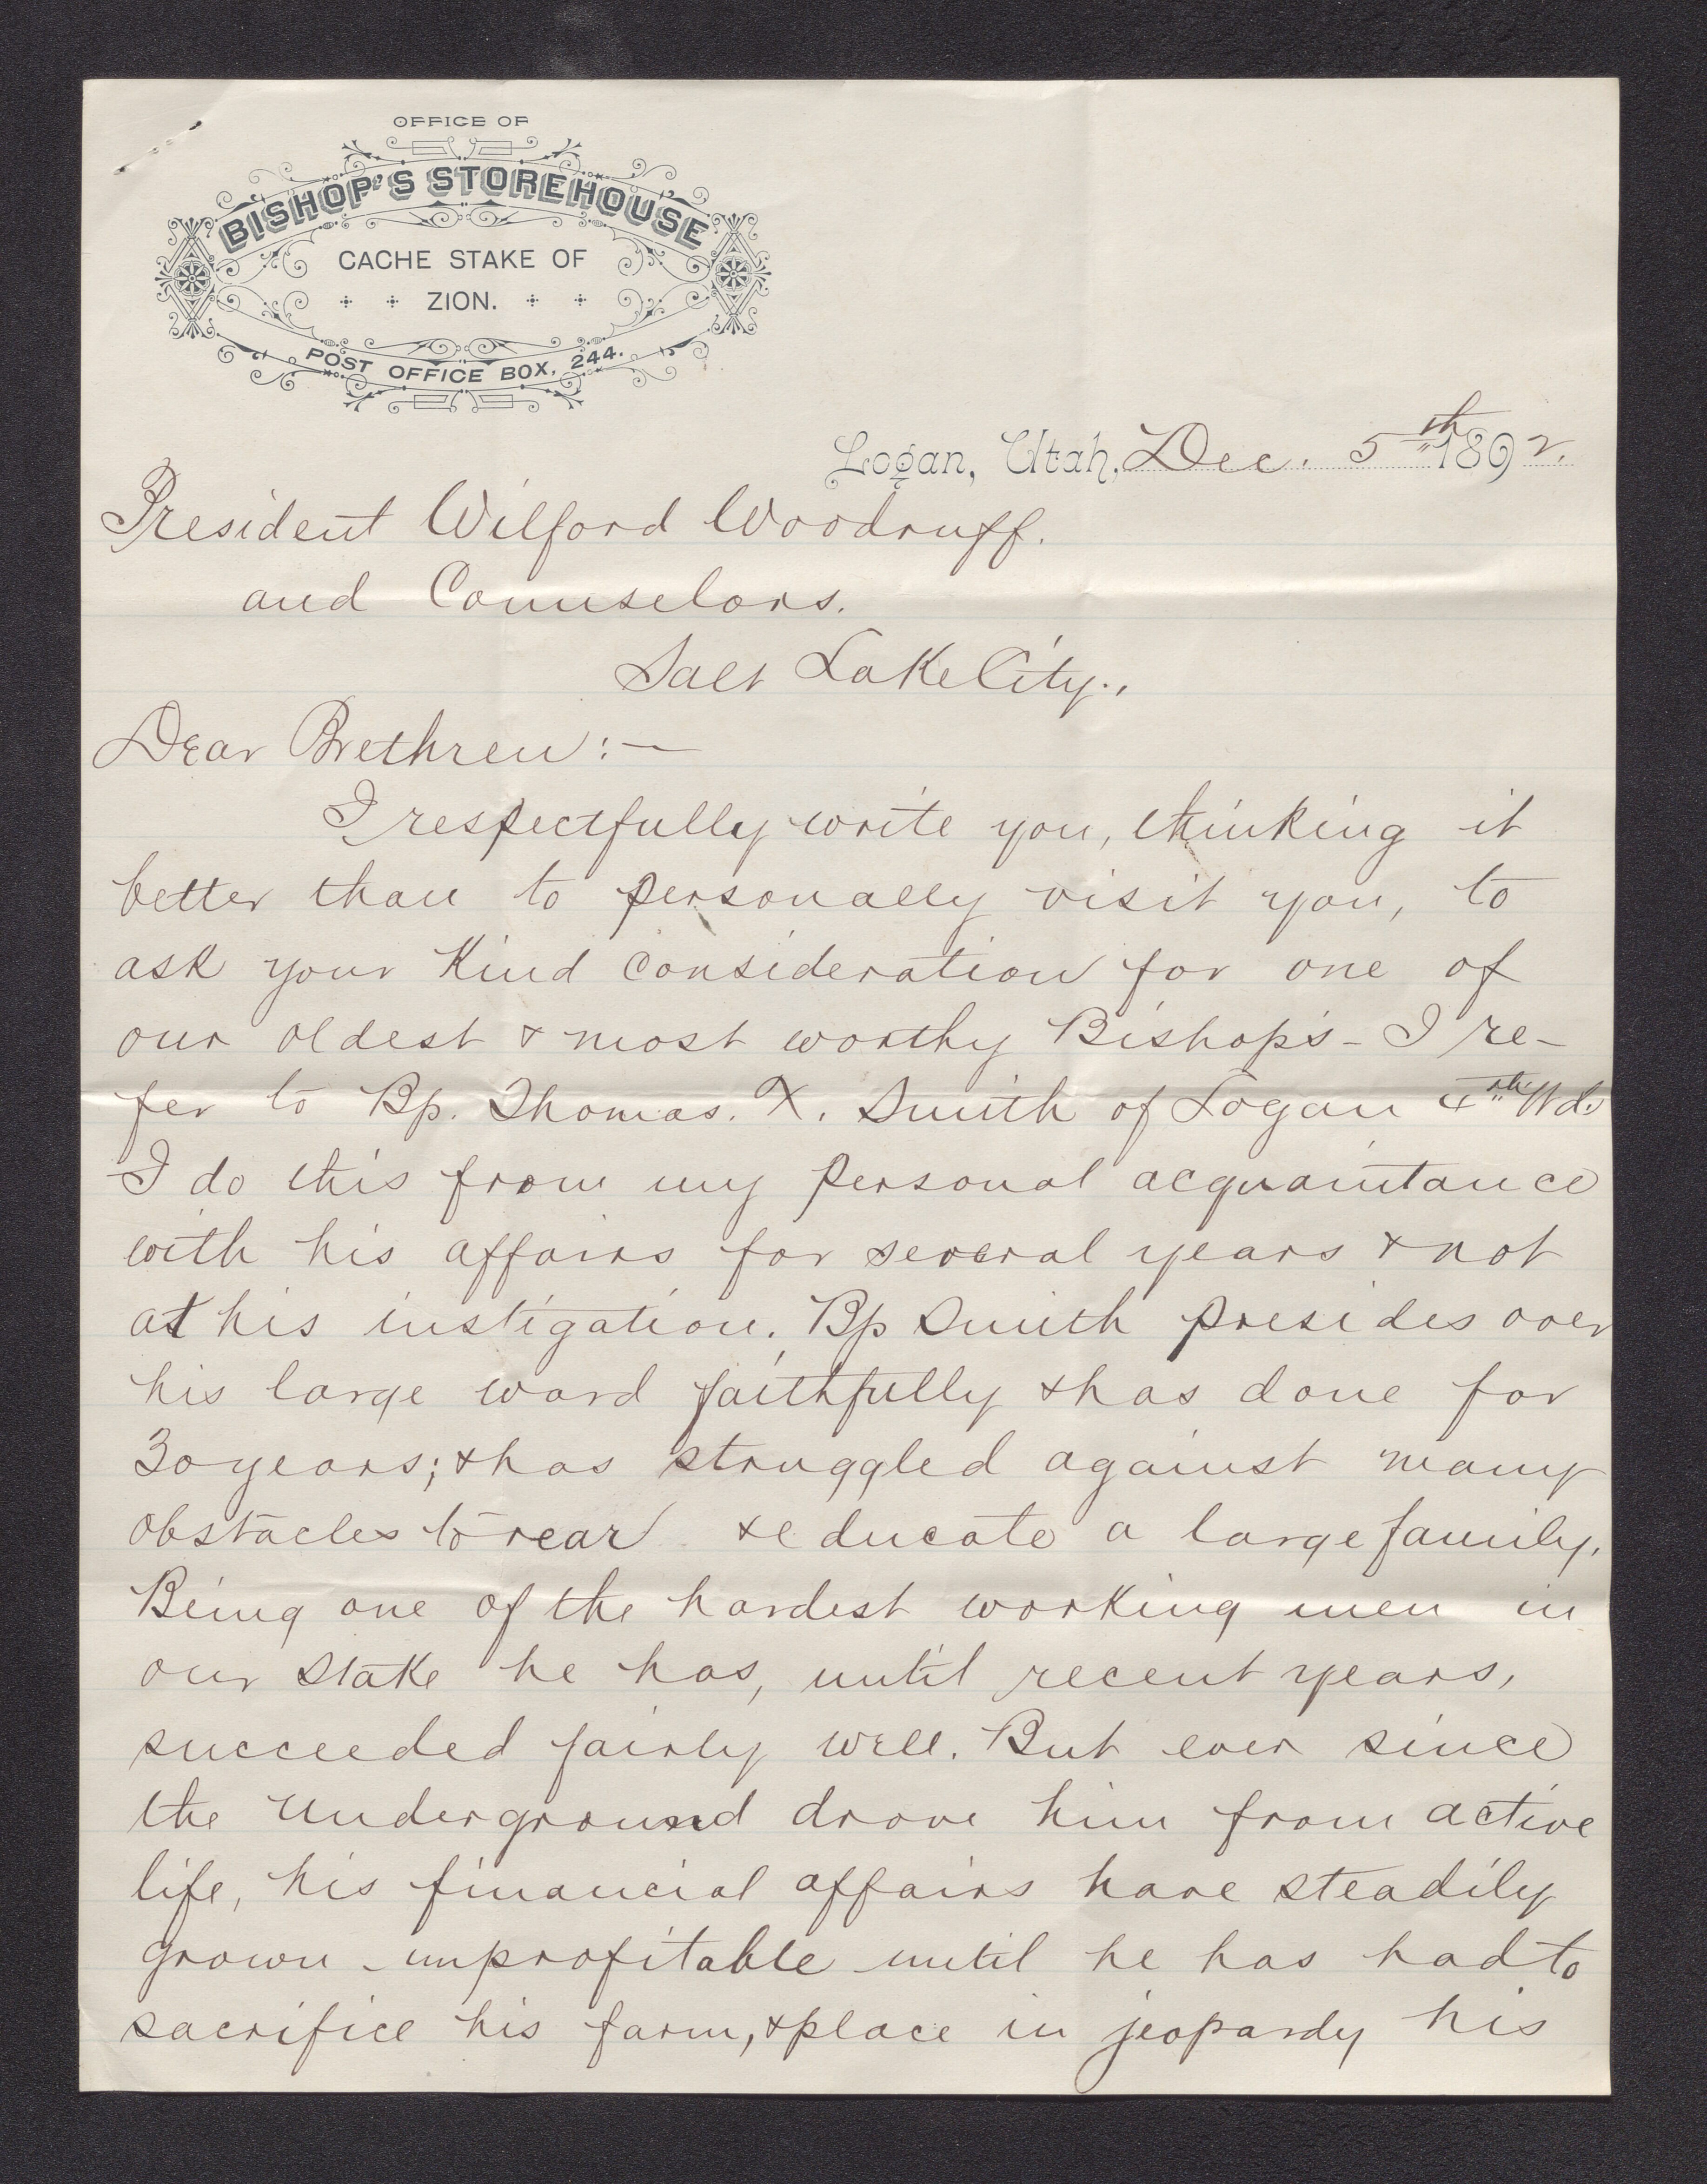 OFFICE OF
BISHOP'S STOREHOUSE
CACHE STAKE OF
ZION.
POST OFFICE BOX, 244.
Logan, Utah, Dec. 5th 1892.
President Wilford Woodruff.
and Counselors.
Salt Lake City.,
Dear Brethren:—
I respectfully write you, thinking it
better than to personally visit you, to
ask your Kind Consideration for one of
our oldest & most worthy Bishop's - I re-
fer to Bp. Thomas. X. Smith of Logan 4th Wd.
I do this from my personal acquaintance
with his affairs for several years & not
at his instigation. Bp Smith presides over
his large ward faithfully & has done for
30 years; & has struggled against many
obstacles to rear & educate a large family.
Being one of the hardest working men in
our Stake he has, until recent years,
succeeded fairly well. But ever since
the Underground drove him from active
life, his financial affairs have steadily
grown - unprofitable until he has had to
sacrifice his farm, & place in jeopardy his